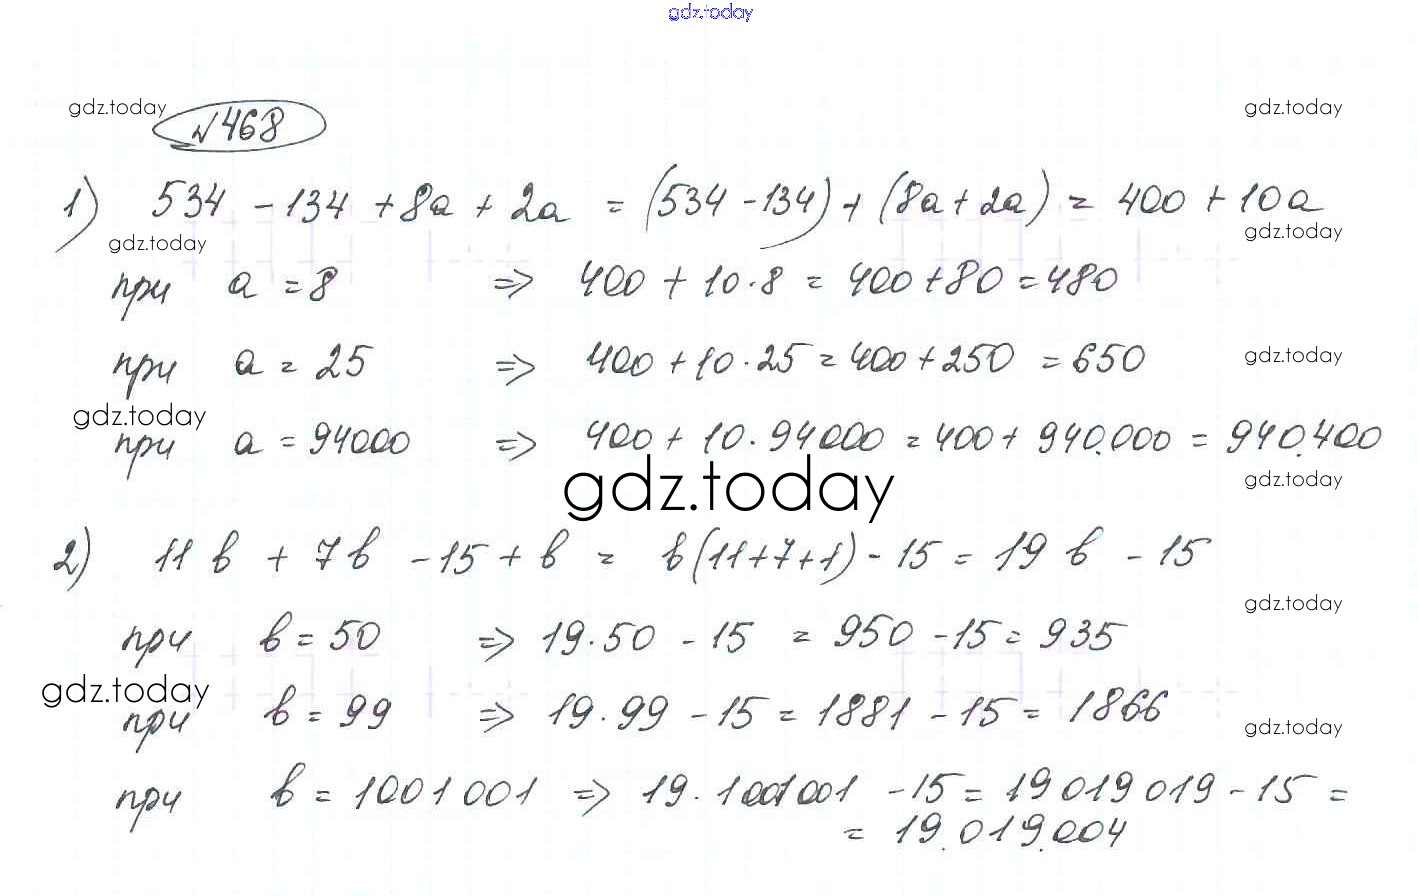 gdz.today
gdz.today
gdz.today
№468
1) 534 - 134 + 8a + 2a = (534 - 134) + (8a + 2a) = 400 + 10a
gdz.today
gdz.today
при a = 8 => 400 + 10·8 = 400 + 80 = 480
при a = 25 => 400 + 10·25 = 400 + 250 = 650
gdz.today
gdz.today
при a = 94000 => 400 + 10·94000 = 400 + 940.000 = 940.400
gdz.today
gdz.today
2) 11b + 7b - 15 + b = b(11+7+1) - 15 = 19b - 15
gdz.today
при b = 50 => 19·50 - 15 = 950 - 15 = 935
gdz.today
при b = 99 => 19·99 - 15 = 1881 - 15 = 1866
gdz.today
при b = 1001001 => 19·1001001 - 15 = 19019019 - 15 =
= 19.019.004